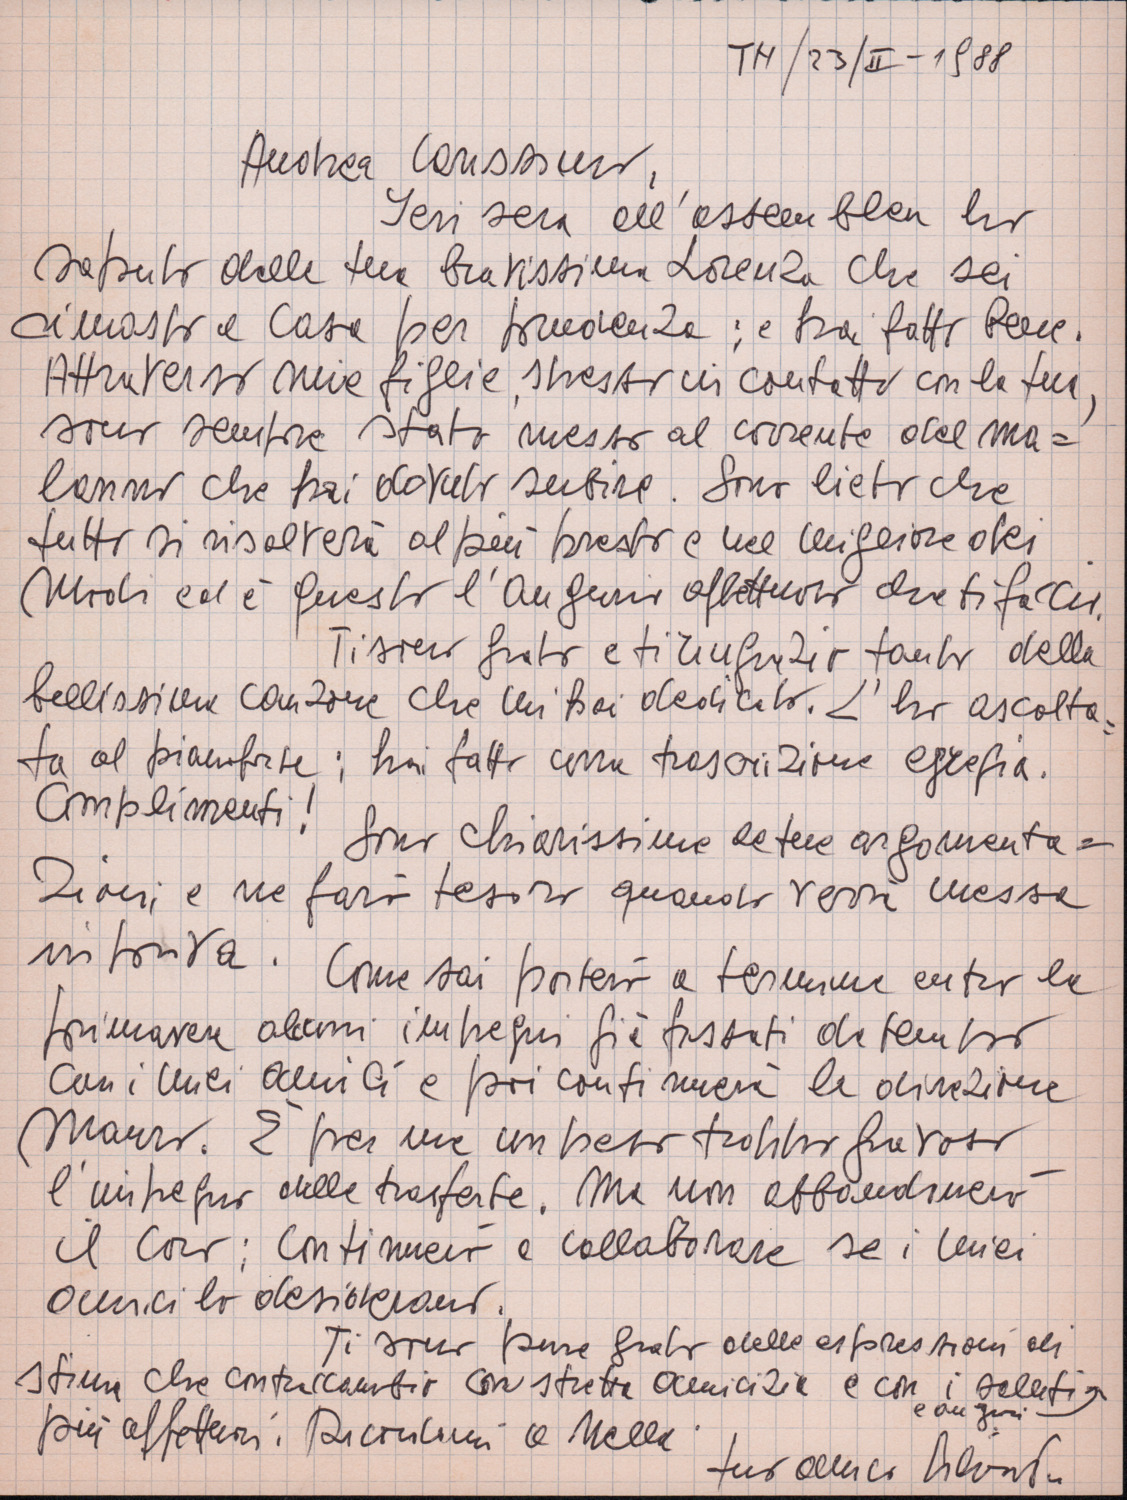 TN/23/II-1988
Andrea Carissimo,
Ieri sera all'assemblea ho
saputo dalla tua bravissima Lorenza che sei
rimasto a Casa per prudenza; e hai fatto bene.
Attraverso mie figlie, spesso in contatto con la tua,
sono sempre stato messo al corrente del ma=
lanno che hai dovuto subire. Sono lieto che
tutto si risolverà al più presto e nel migliore dei
Modi ed è questo l'augurio affettuoso che ti faccio.
Ti sono grato e ti ringrazio tanto della
bellissima canzone che mi hai dedicato. L'ho ascolta=
ta al pianoforte; hai fatto una trascrizione egregia.
Complimenti!
Sono chiarissime le tue argomenta=
zioni e ne farò tesoro quando verrà messa
in prova.
Come sai porterò a termine entro la
primavera alcuni impegni già fissati da tempo
con i miei amici e poi continuerà la direzione
Mauro. È per me un peso troppo gravoso
l'impegno delle trasferte. Ma non abbandonerò
il Coro; Continuerò a collaborare se i miei
amici lo desiderano.
Ti sono pure grato delle espressioni di
stima che contraccambio con stretta amicizia e con i saluti
e auguri
più affettuosi. Ricordami a Nella
tuo amico